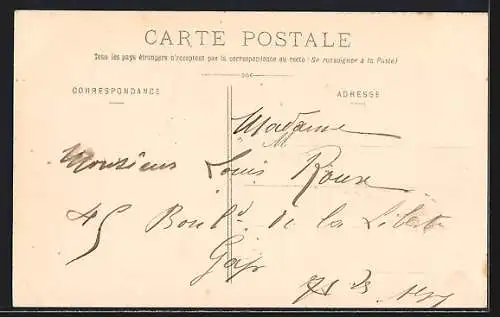 CARTE POSTALE
Tous les pays étrangers n'acceptent pas la correspondance au recto (Se renseigner à la Poste)
CORRESPONDANCE
ADRESSE
Madame
M
Monsieur Louis Roux
45 Boul.d de la Liberté
Gap